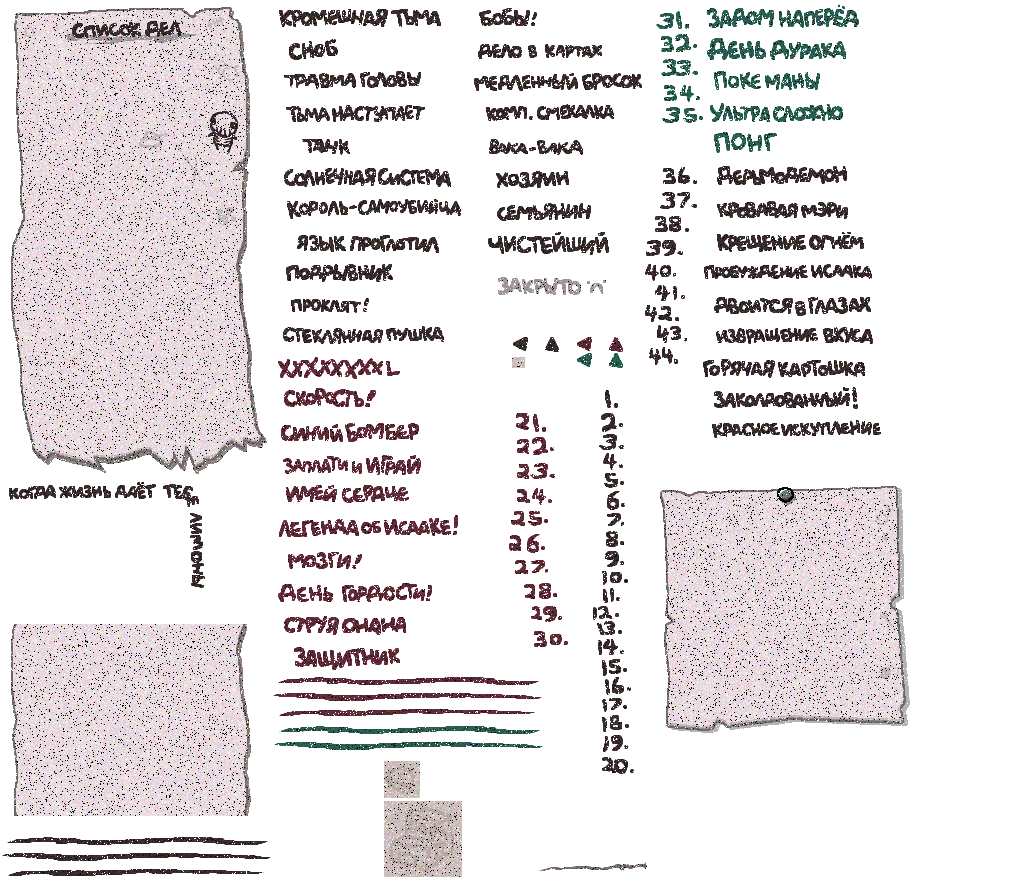 СПИСОК ДЕЛ
КОГДА ЖИЗНЬ ДАЁТ ТЕБЕ
ЛИМОНЫ
КРОМЕШНАЯ ТЬМА
СНОБ
ТРАВМА ГОЛОВЫ
ТЬМА НАСТУПАЕТ
ТАНК
СОЛНЕЧНАЯ СИСТЕМА
КОРОЛЬ-САМОУБИЙЦА
ЯЗЫК ПРОГЛОТИЛ
ПОДРЫВНИК
ПРОКЛЯТ!
СТЕКЛЯННАЯ ПУШКА
XXXXXXXXL
СКОРОСТЬ!
СИНИЙ БОМБЕР
ЗАПЛАТИ И ИГРАЙ
ИМЕЙ СЕРДЦЕ
ЛЕГЕНДА ОБ ИСААКЕ!
МОЗГИ!
ДЕНЬ ГОРДОСТИ!
СТРУЯ ОНАНА
ЗАЩИТНИК
БОБЫ!
ДЕЛО В КАРТАХ
МЕДЛЕННЫЙ БРОСОК
КОМП. СМЕКАЛКА
ВАКА-ВАКА
ХОЗЯИН
СЕМЬЯНИН
ЧИСТЕЙШИЙ
ЗАКРЫТО "П"
21.
22.
23.
24.
25.
26.
27.
28.
29.
30.
1.
2.
3.
4.
5.
6.
7.
8.
9.
10.
11.
12.
13.
14.
15.
16.
17.
18.
19.
20.
31.
32.
33.
34.
35.
36.
37.
38.
39.
40.
41.
42.
43.
44.
ЗАДОМ НАПЕРЁД
ДЕНЬ ДУРАКА
ПОКЕ МАНЫ
УЛЬТРА СЛОЖНО
ПОНГ
ДЕРЬМОДЕМОН
КРОВАВАЯ МЭРИ
КРЕЩЕНИЕ ОГНЁМ
ПРОБУЖДЕНИЕ ИСААКА
ДВОИТСЯ В ГЛАЗАХ
ИЗВРАЩЕНИЕ ВКУСА
ГОРЯЧАЯ КАРТОШКА
ЗАКОЛДОВАННЫЙ!
КРАСНОЕ ИСКУПЛЕНИЕ